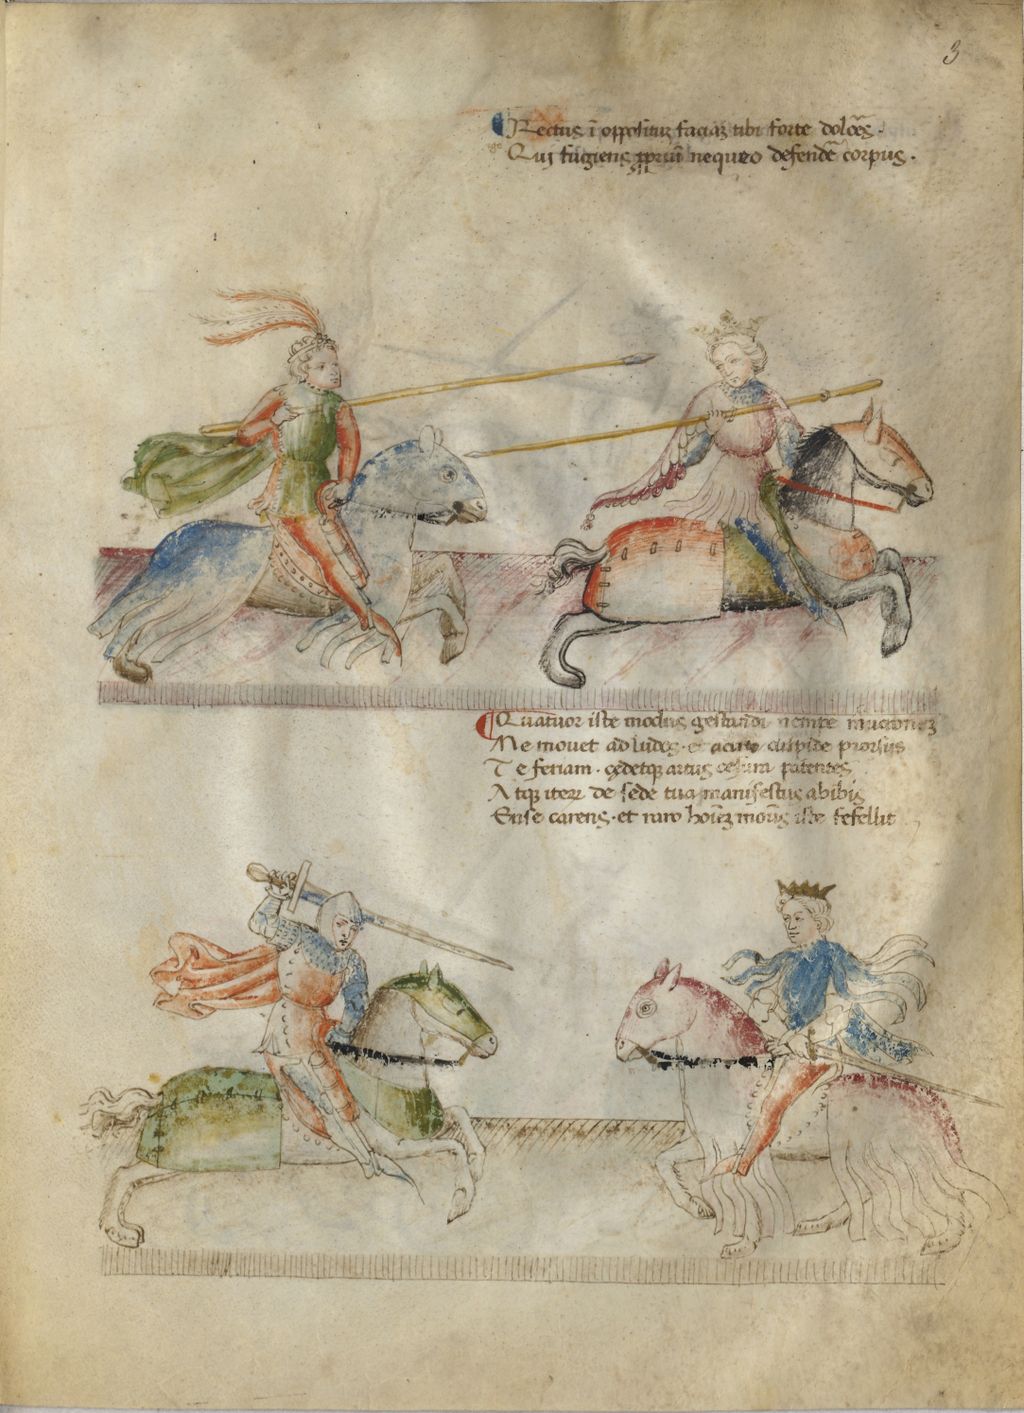 3
Rectus ī oppositū faciaʒ tibi forte dolōes.
Qui fugiens ꝓpriū nequeo defendē corpus.
Quatuor iste modus gestandi nempe mucronēʒ
Me movet ad ludos. et acuto cuspide prorsus
Te feriam. cedetqꝫ artus cesura patentes
Atqꝫ iterū de sede tua manifestus abibis
Ense carens. et raro hoīeʒ modus iste fefellit